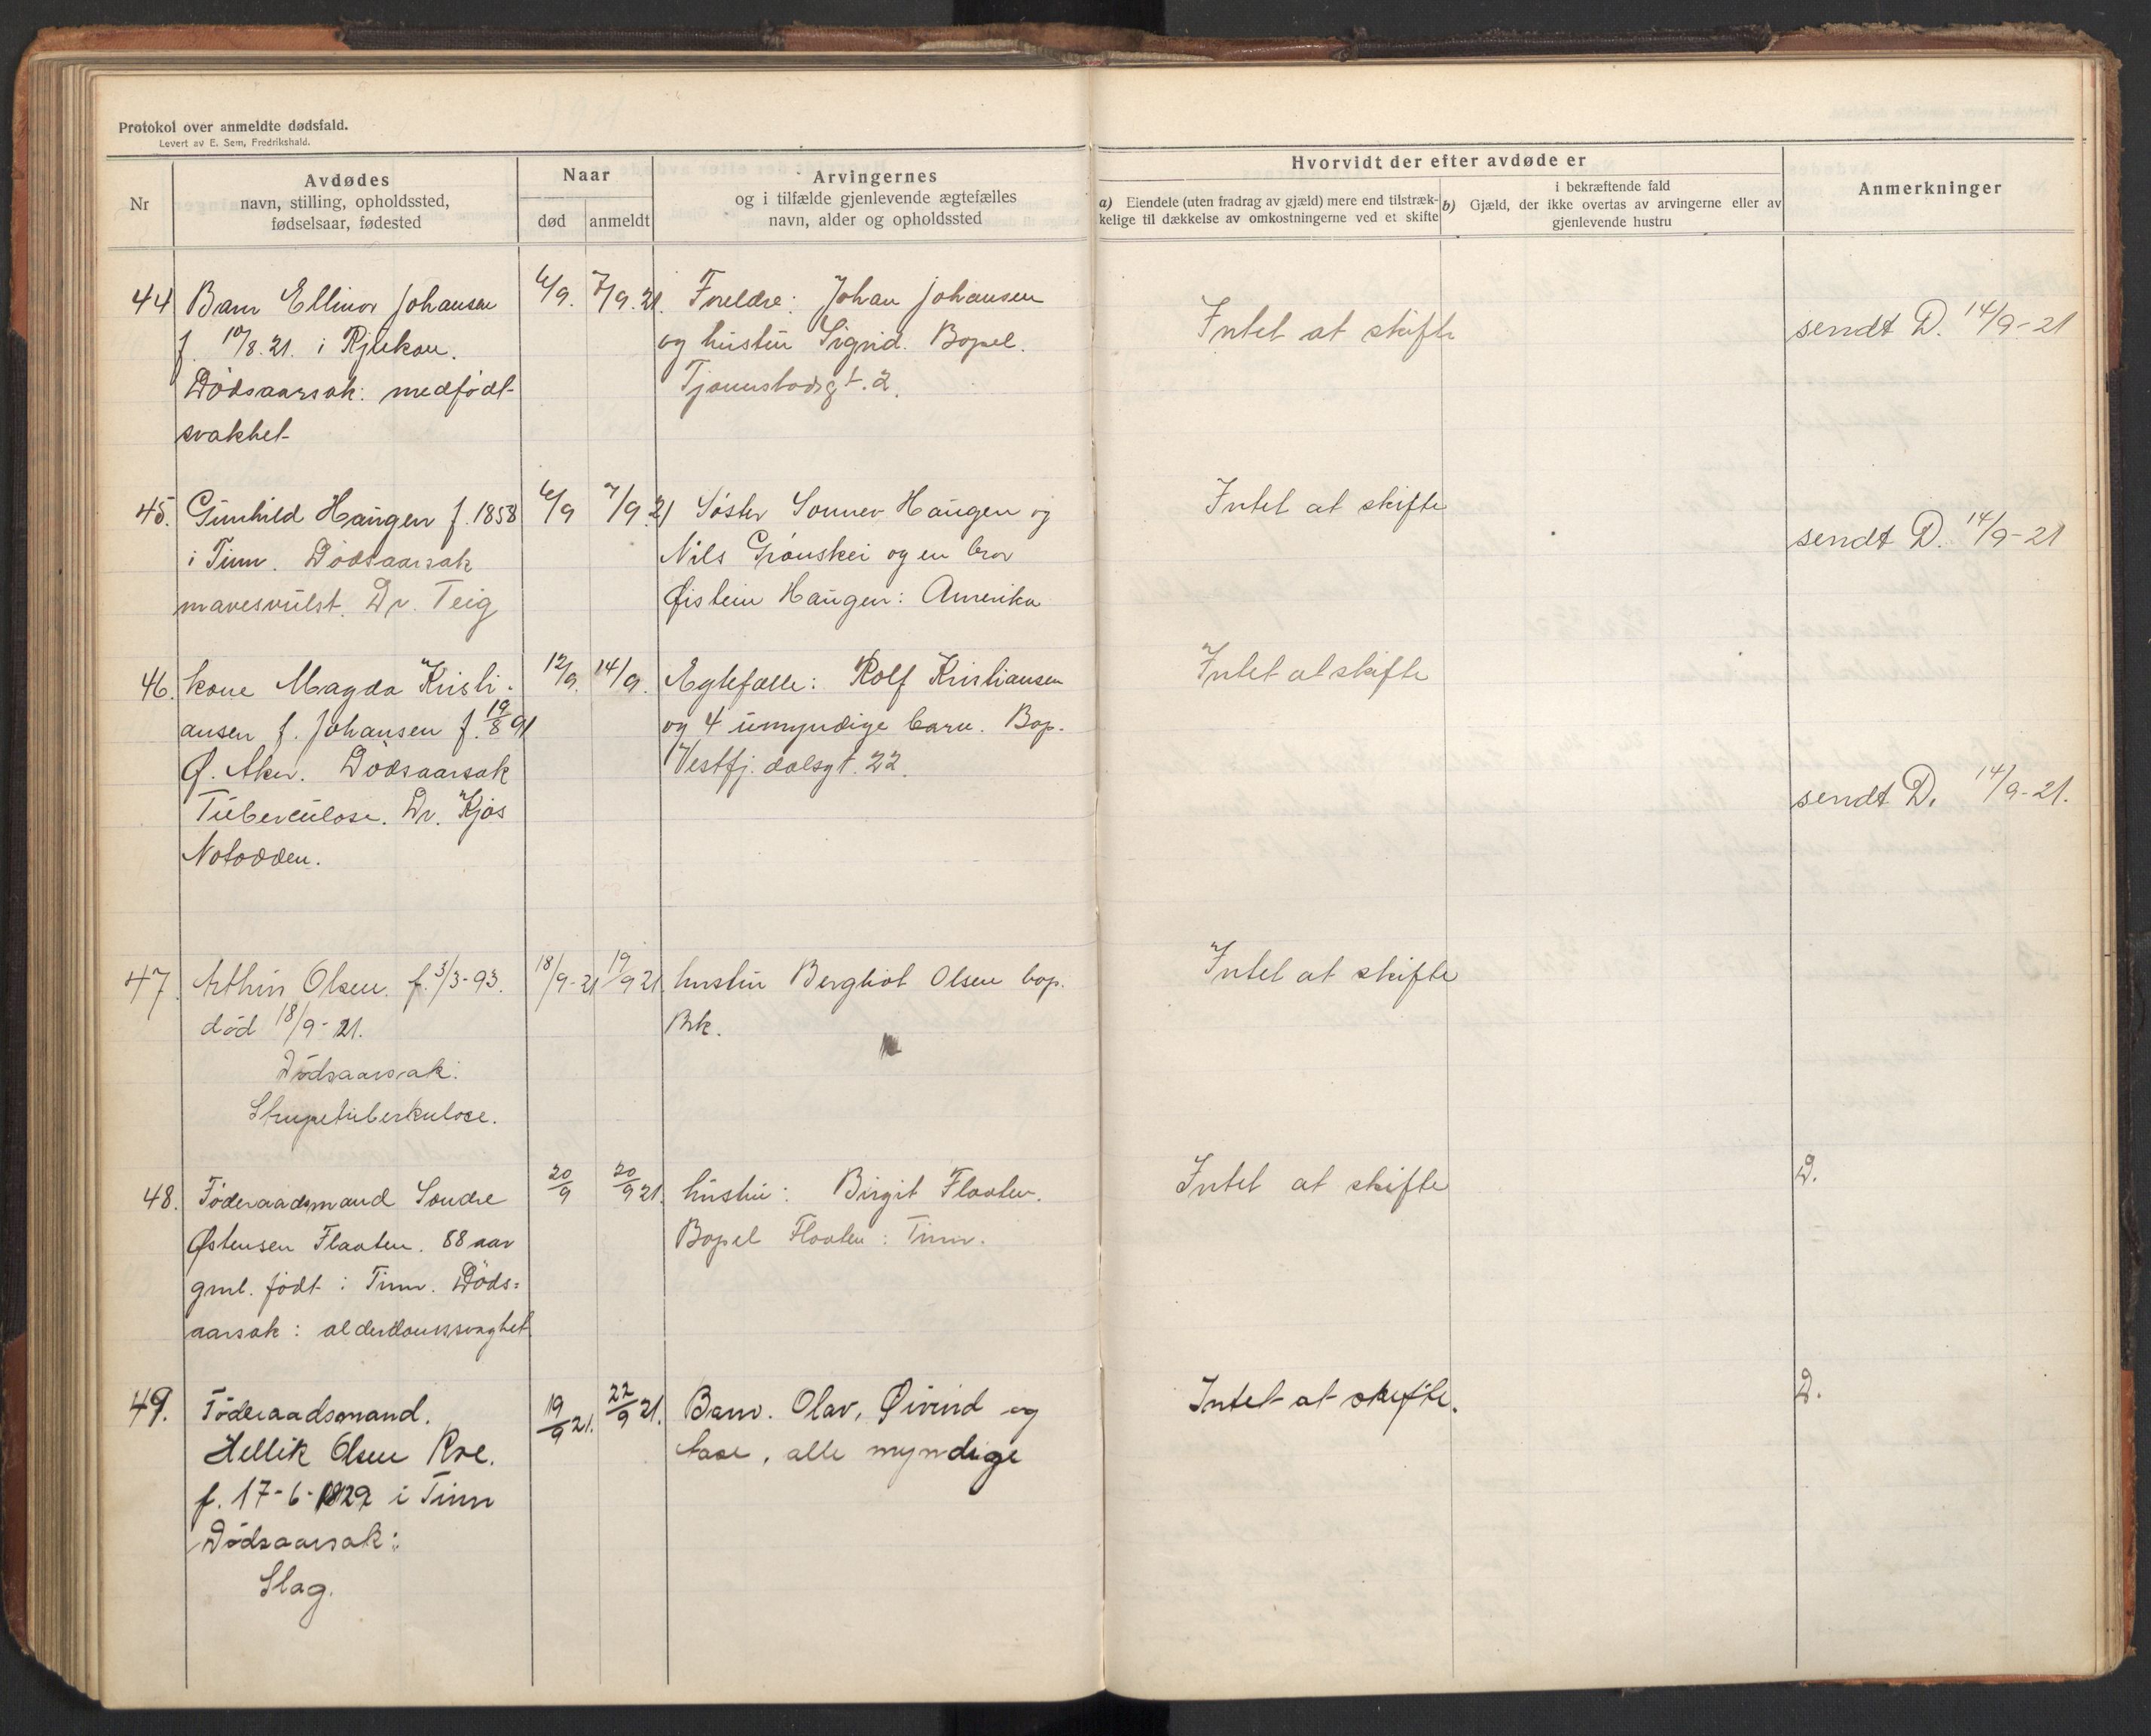 Protokol over anmeldte dødsfald.
Levert av E. Sem, Fredrikshald.
Nr
Avdødes
navn, stilling, opholdssted,
fødselsaar, fødested
Naar
død
anmeldt
Arvingernes
og i tilfælde gjenlevende ægtefælles
navn, alder og opholdssted
Hvorvidt der efter avdøde er
a) Eiendele (uten fradrag av gjæld) mere end tilstræk-
kelige til dækkelse av omkostningerne ved et skifte
i bekræftende fald
b) Gjæld, der ikke overtas av arvingerne eller av
gjenlevende hustru
Anmerkninger
44 Barn Ellinor Johansen
f. 10/8.21. i Rjukan.
Dødsaarsak: medfødt
svakhet
6/9. 7/9.21.
Foreldre: Johan Johansen
og hustru Sigrid. Bopel.
Tjønnstadsgt. 2.
Intet at skifte
sendt D. 14/9-21
45. Gunhild Haugen f. 1858
i Tinn. Dødsaarsak
mavesvulst. Dr. Teig
6/9 7/9.21
Søster Sonnev Haugen og
Nils Grønskei og en bror
Øistein Haugen: Amerika
Intet at skifte
sendt D. 14/9-21
46. kone Magda Kristi-
ansen f. Johansen f. 19/8 91
Ø. Aker. Dødsaarsak
Tuberculose. Dr. Kjøs
Notodden.
12/9. 14/9.
Egtefælle: Rolf Kristiansen
og 4 umyndige barn. Bop.
Vestfj. dalsgt. 22.
Intet at skifte
sendt D. 14/9-21.
47. Arthur Olsen. f. 3/3-93.
død 18/9-21.
Dødsaarsak:
Strupetuberkulose.
18/9-21 19/9 21.
hustru Bergliot Olsen bop.
Rik.
Intet at skifte
48. Føderaadsmand Sondre
Østensen Flaaten. 88 aar
gml. født i Tinn. Døds=
aarsak: alderdomssvaghet
20/9 20/9 21.
hustru: Birgit Flaaten.
Bopel Flaaten: Tinn.
Intet at skifte
D.
49. Føderaadsmand.
Hellik Olsen Roe.
f. 17-6-1829 i Tinn
Dødsaarsak:
Slag.
19/9 21. 22/9 21.
Barn. Olav, Øivind og
Aase, alle myndige
Intet at skifte.
D.